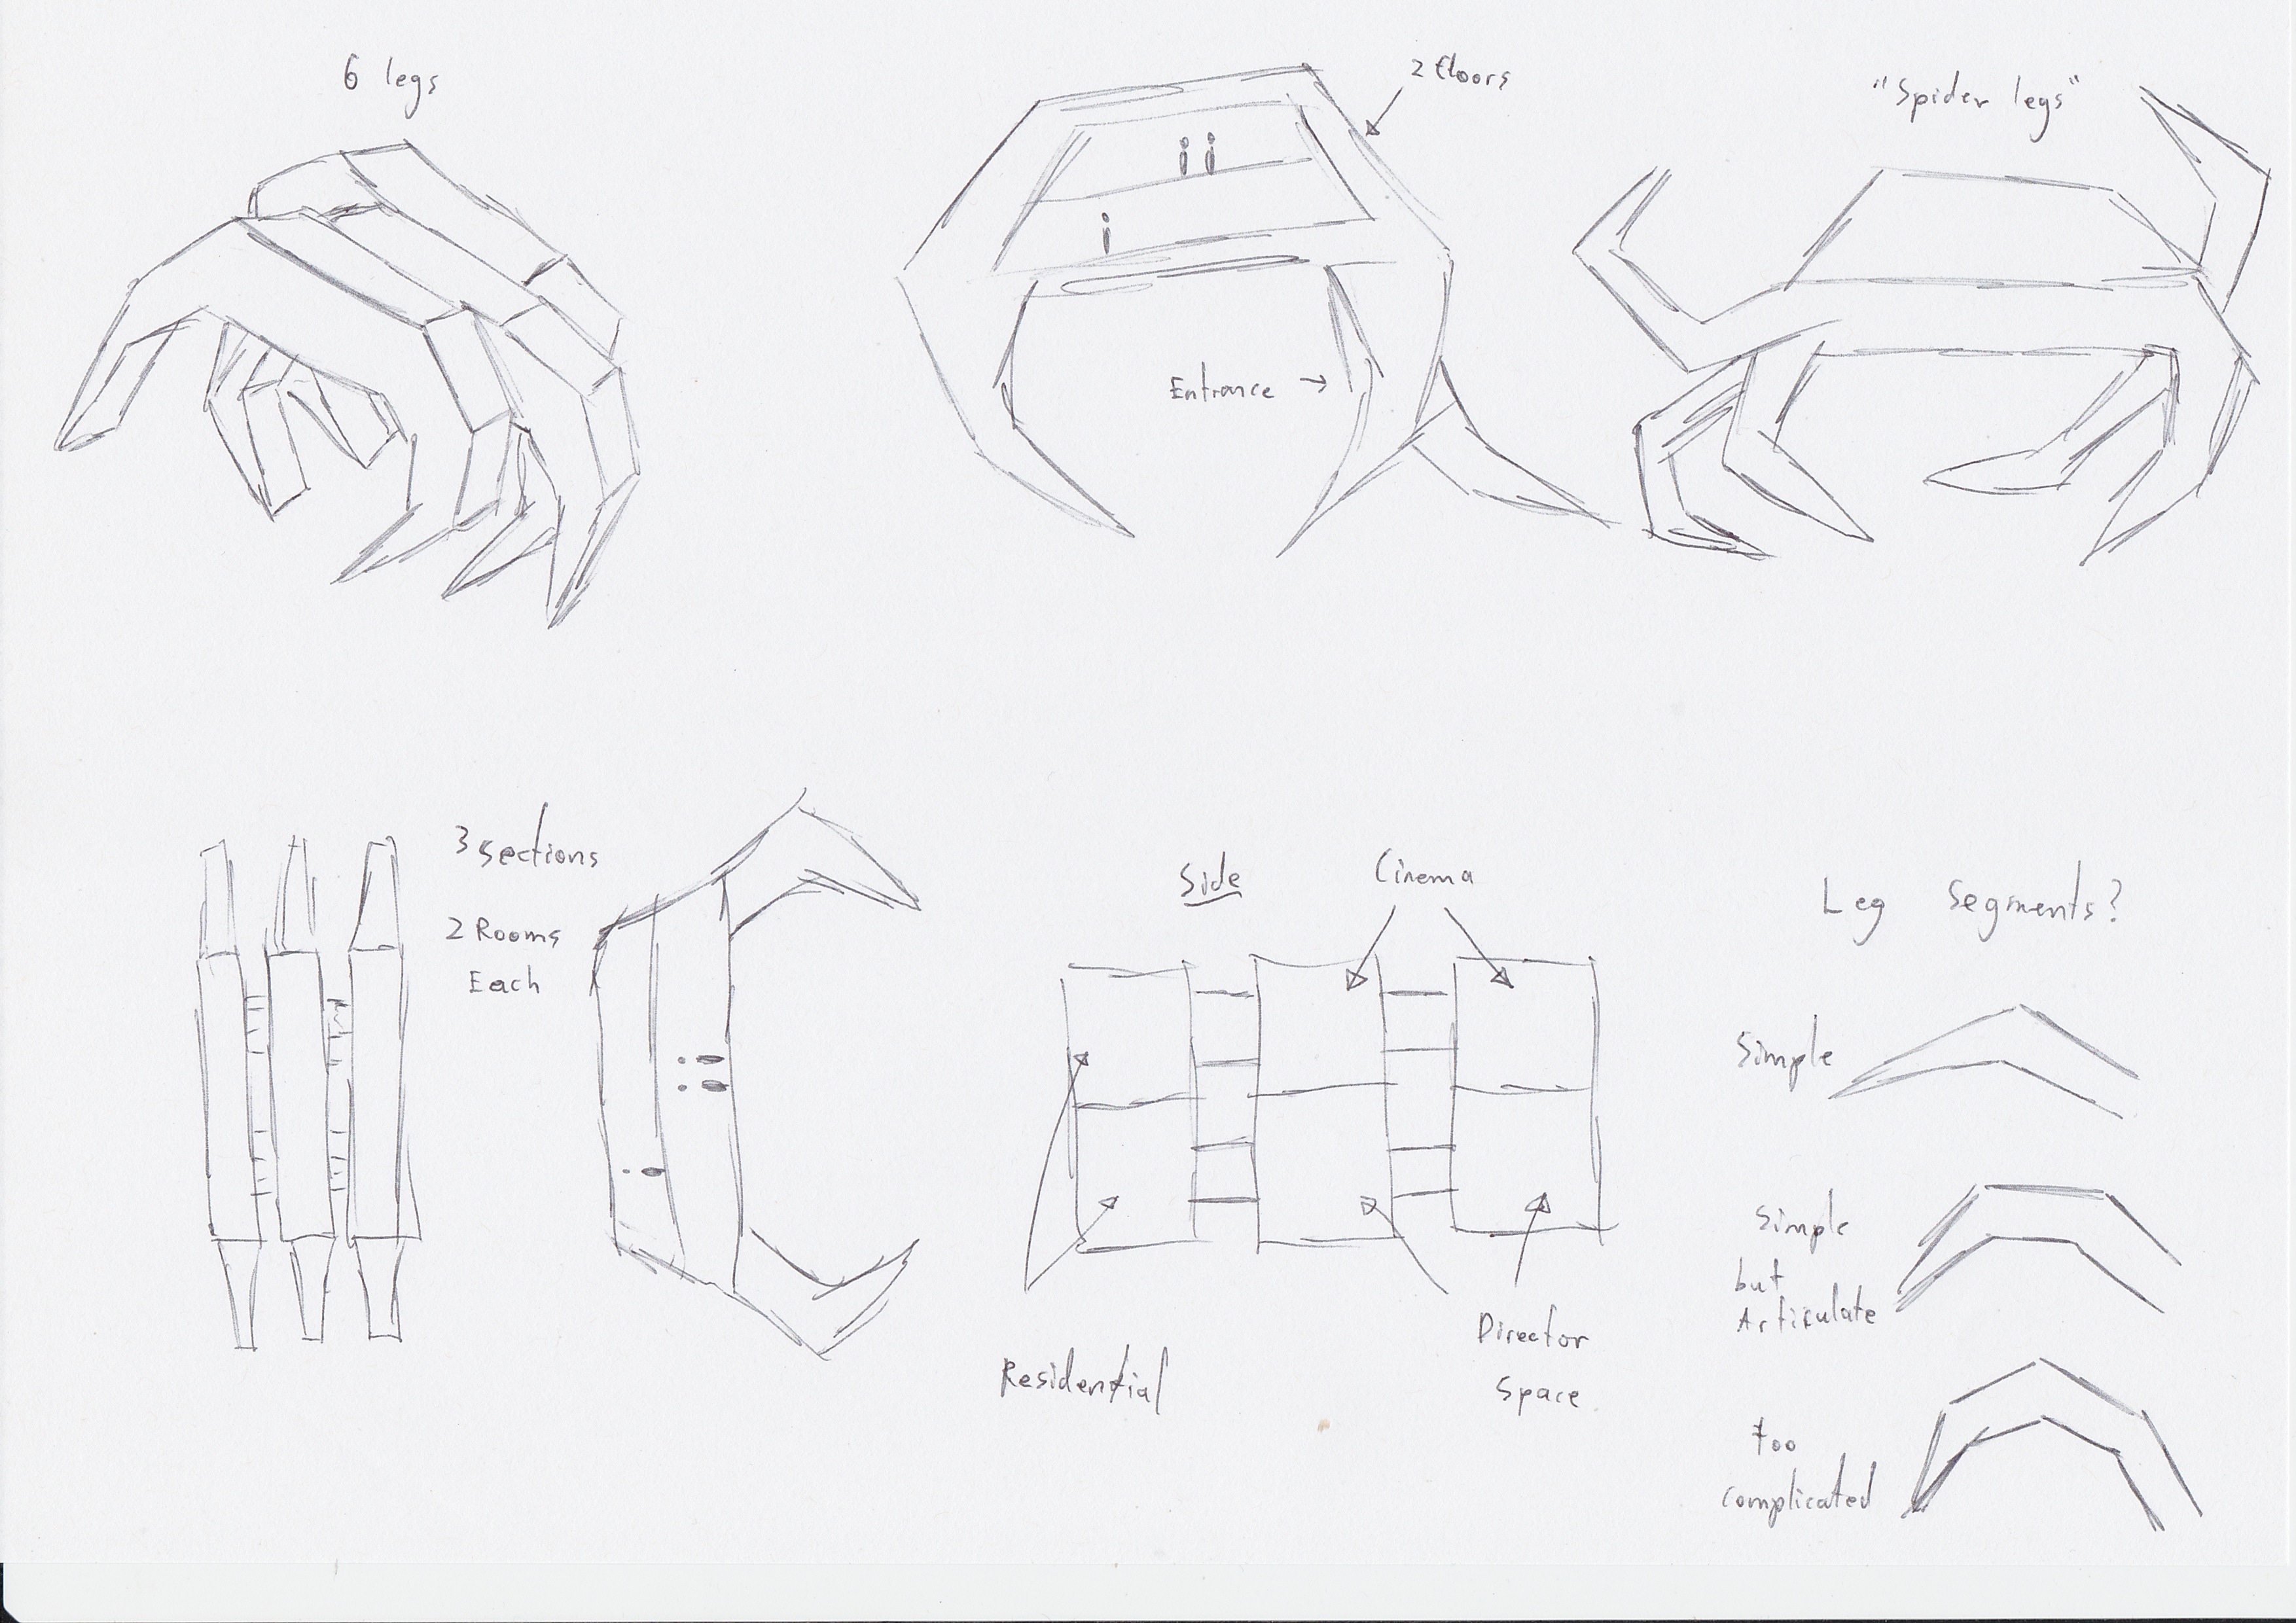 6 legs
2 floors
"Spider legs"
Entrance →
3 Sections
2 Rooms
Each
Side
Cinema
Residential
Director
Space
Leg Segments?
Simple
Simple
but
Articulate
too
complicated